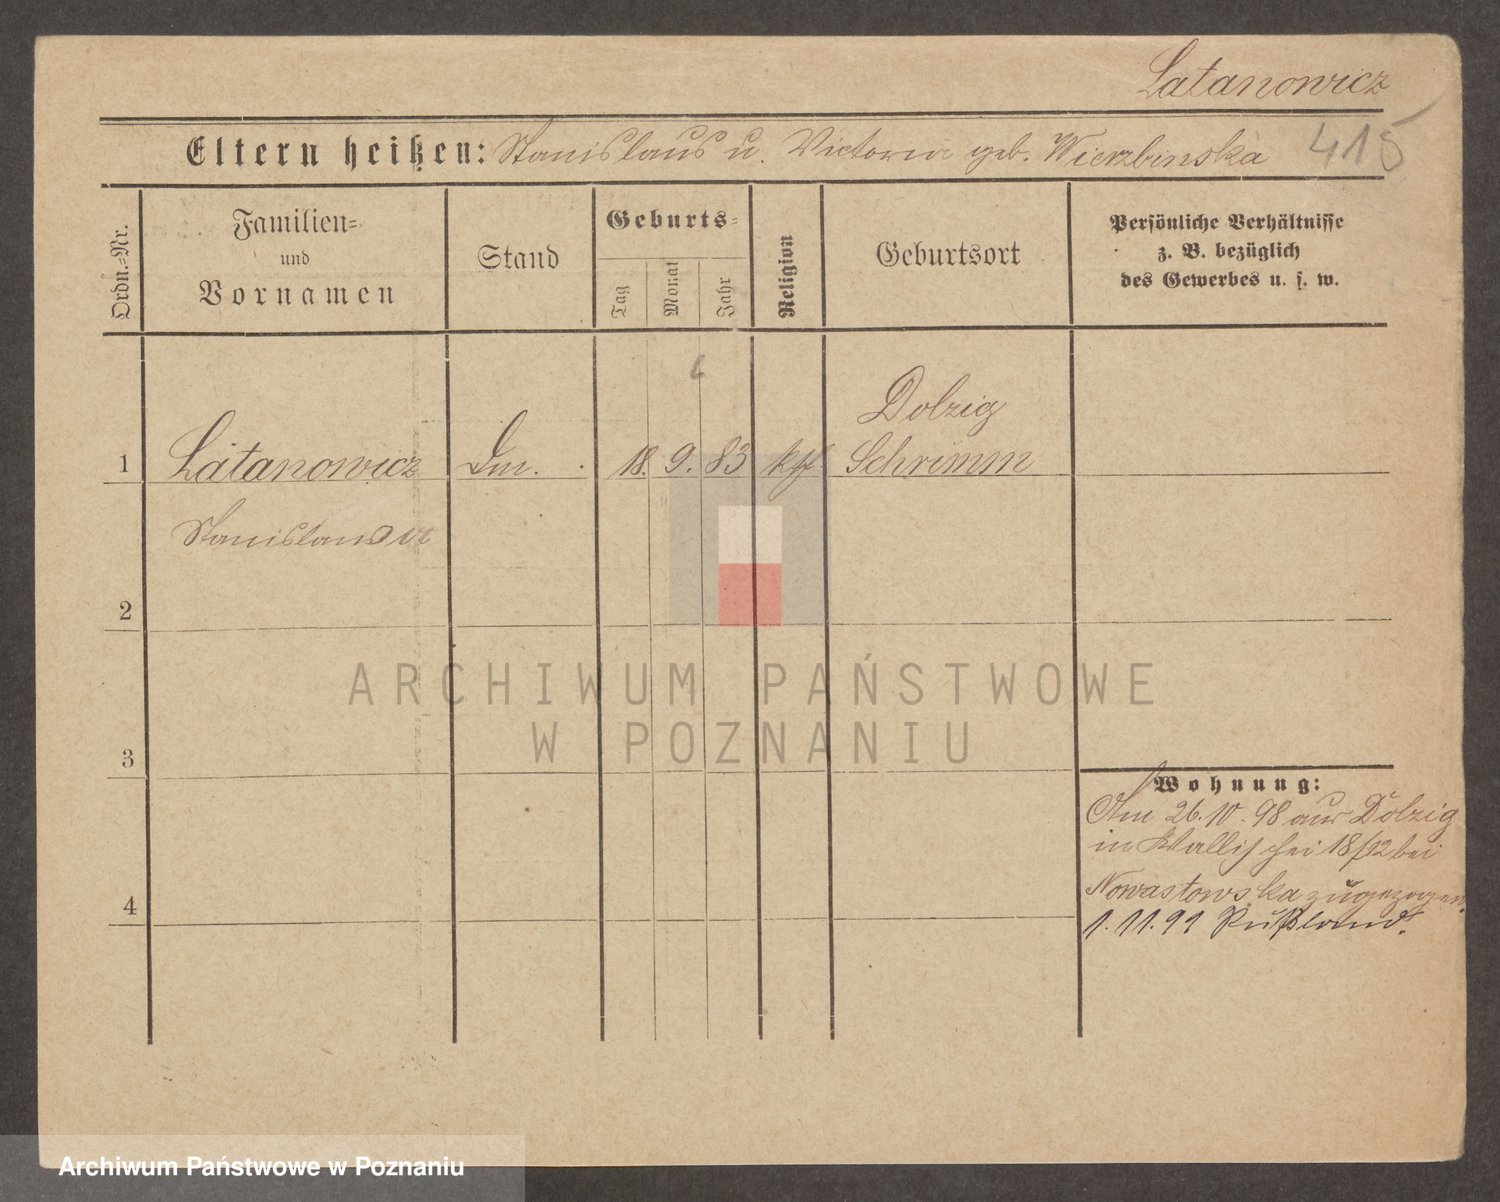 Latanowicz
Eltern heißen: Stanislaus u. Victoria geb. Wierzbinska 415
Ordn.-Nr.
Familien-
und
Vornamen
Stand
Geburts-
Tag
Monat
Jahr
Religion
Geburtsort
Persönliche Verhältnisse
z. B. bezüglich
des Gewerbes u. s. w.
Dolzig
1 Latanowicz 18. 9. 83 kth Schrimm
Stanislaus
2
ARCHIWUM PAŃSTWOWE
W POZNANIU
3
Wohnung:
Am 26.10.98 aus Dolzig
in Wallischei 18/12 bei
Nowastowska zugezogen
4
1.11.99 Rußland.
Archiwum Państwowe w Poznaniu